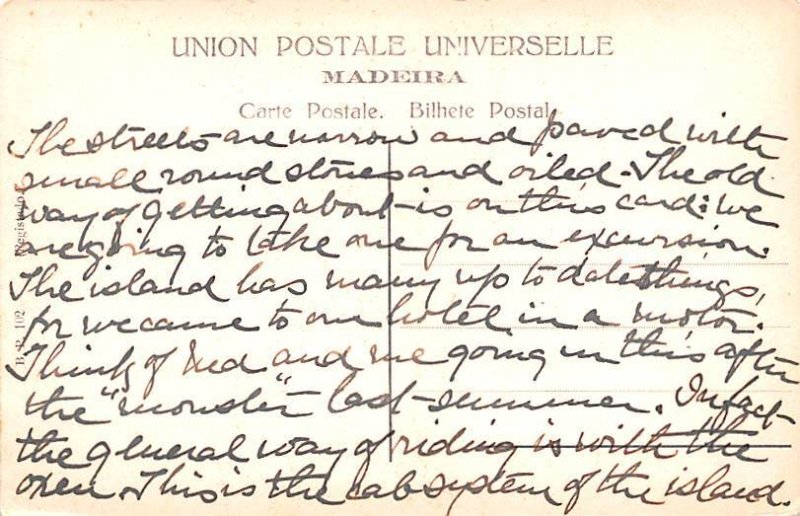 UNION POSTALE UNIVERSELLE
MADEIRA
Carte Postale. Bilhete Postal
The streets are narrow and paved with
small round stones and oiled. The old
way of getting about is on this card: we
are going to take one for an excursion.
The island has many up to date things,
for we came to our hotel in a motor.
Think of Ned and me going in this after
the "monster" last summer. In fact
the general way of riding is with the
oxen. This is the cab system of the island.
B. P. 102